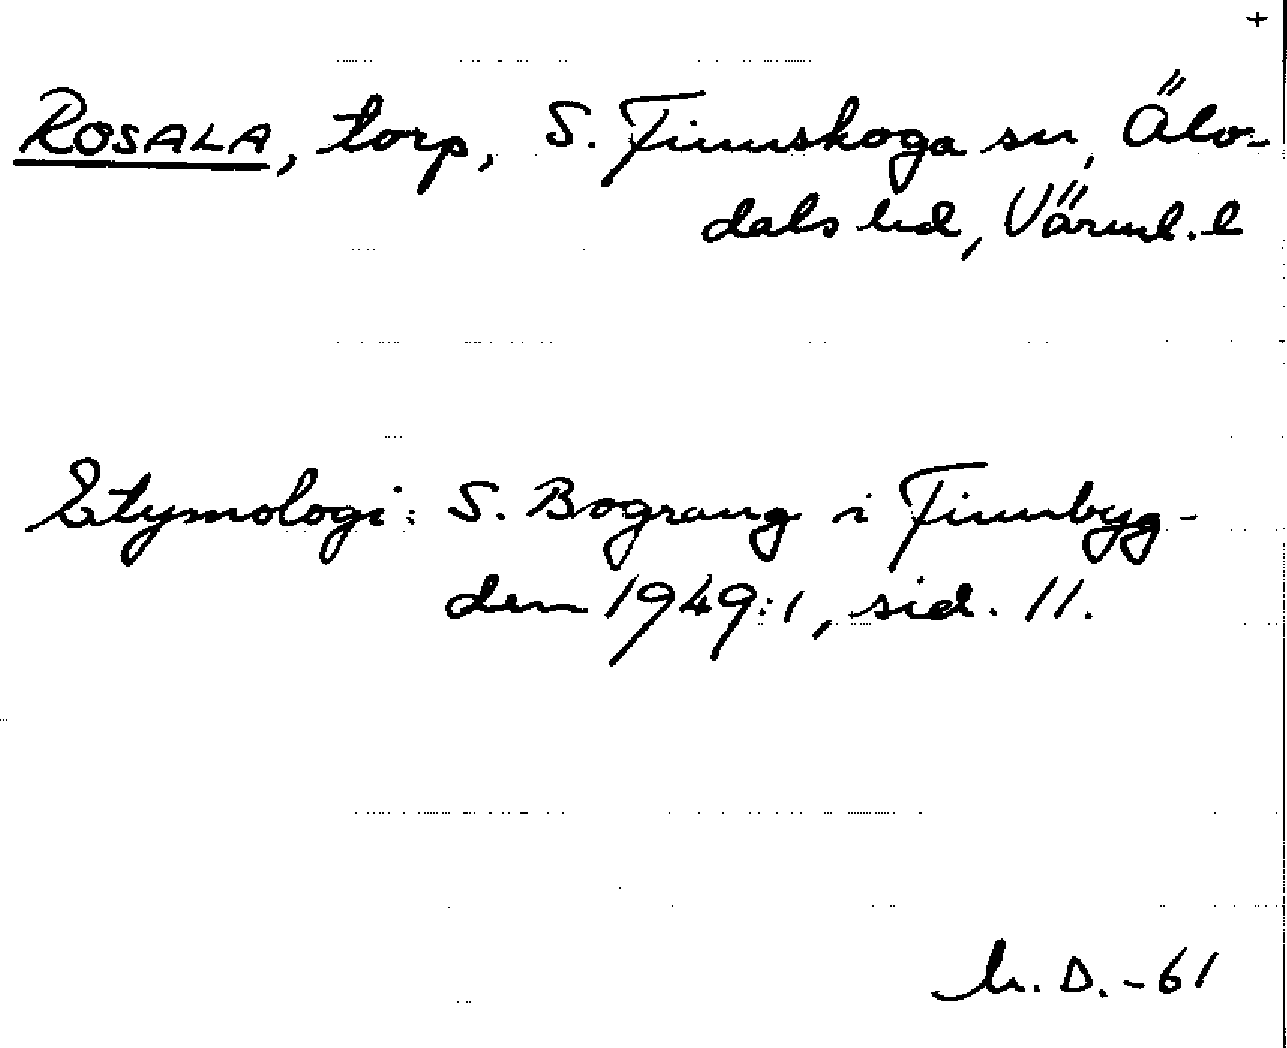 +
ROSALA, torp, S. Finnskoga sn, Älv-
dals hd, Värml. l
Etymologi: S. Bograng i Finnbyg-
den 1949:1, sid. 11.
D. -61